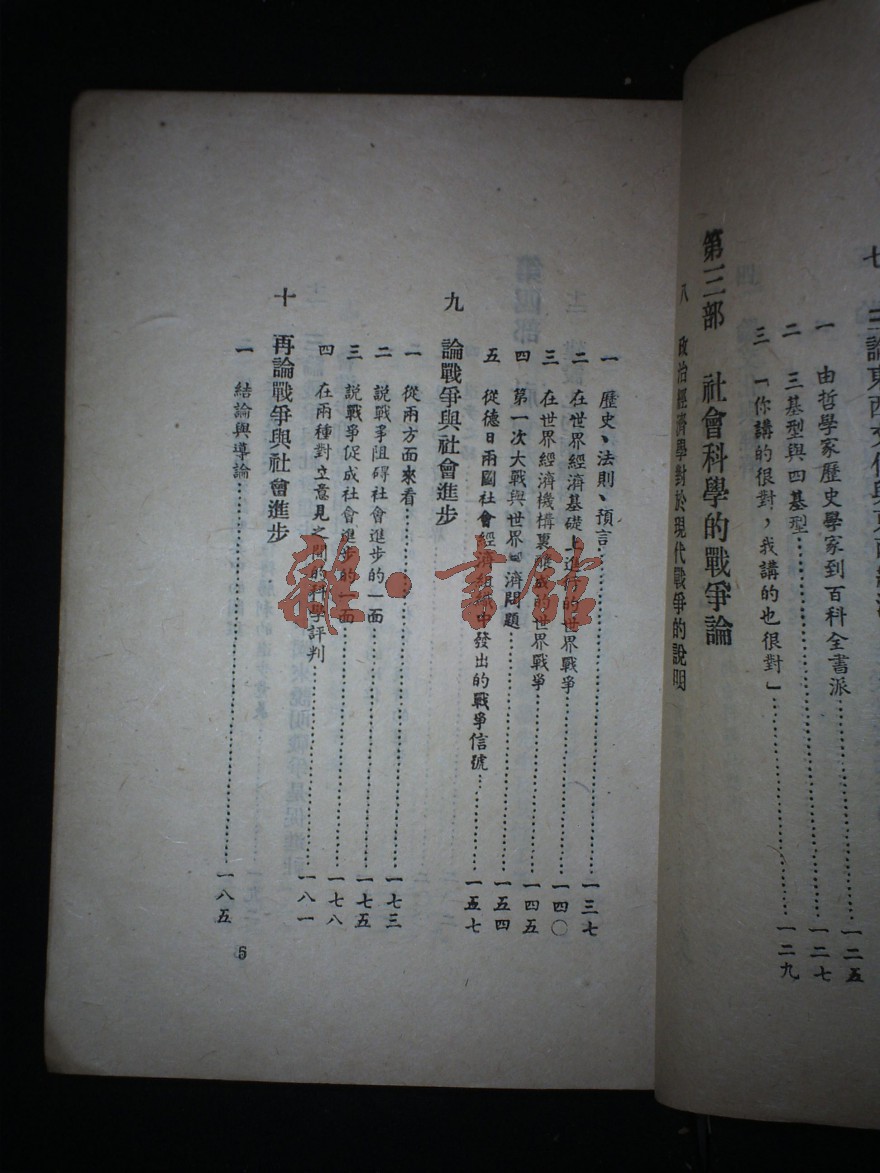 七 三論東西文化與東西
一 由哲學家歷史學家到百科全書派……一二五
二 三基型與四基型……一二七
三 「你講的很對，我講的也很對」……一二九
第三部 社會科學的戰爭論
八 政治經濟學對於現代戰爭的說明
一 歷史、法則、預言……一三七
二 在世界經濟基礎上進行的世界戰爭……一四〇
三 在世界經濟機構裏釀成的世界戰爭……一四五
四 第一次大戰與世界濟問題……一五四
五 從德日兩國社會經濟組織中發出的戰爭信號……一五七
九 論戰爭與社會進步
一 從兩方面來看……一七三
二 說戰爭阻碍社會進步的一面……一七五
三 說戰爭促成社會進步的一面……一七八
四 在兩種對立意見之間的科學評判……一八一
十 再論戰爭與社會進步
一 結論與導論……一八五
5
雜·書館